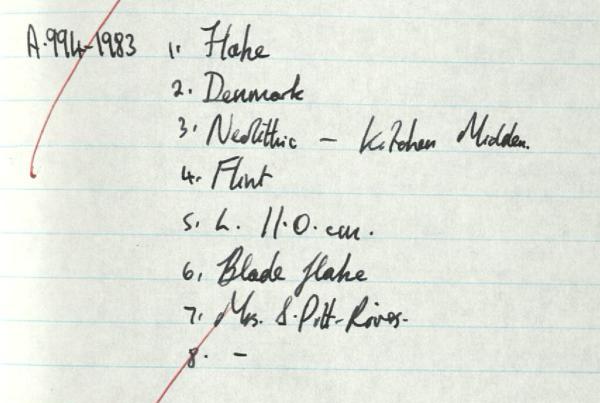 A.994-1983 1. Flake
2. Denmark
3. Neolithic - Kitchen Midden.
4. Flint
5. L. 11.0. cm.
6. Blade flake
7. Mrs. S. Pitt-Rivers.
8. -